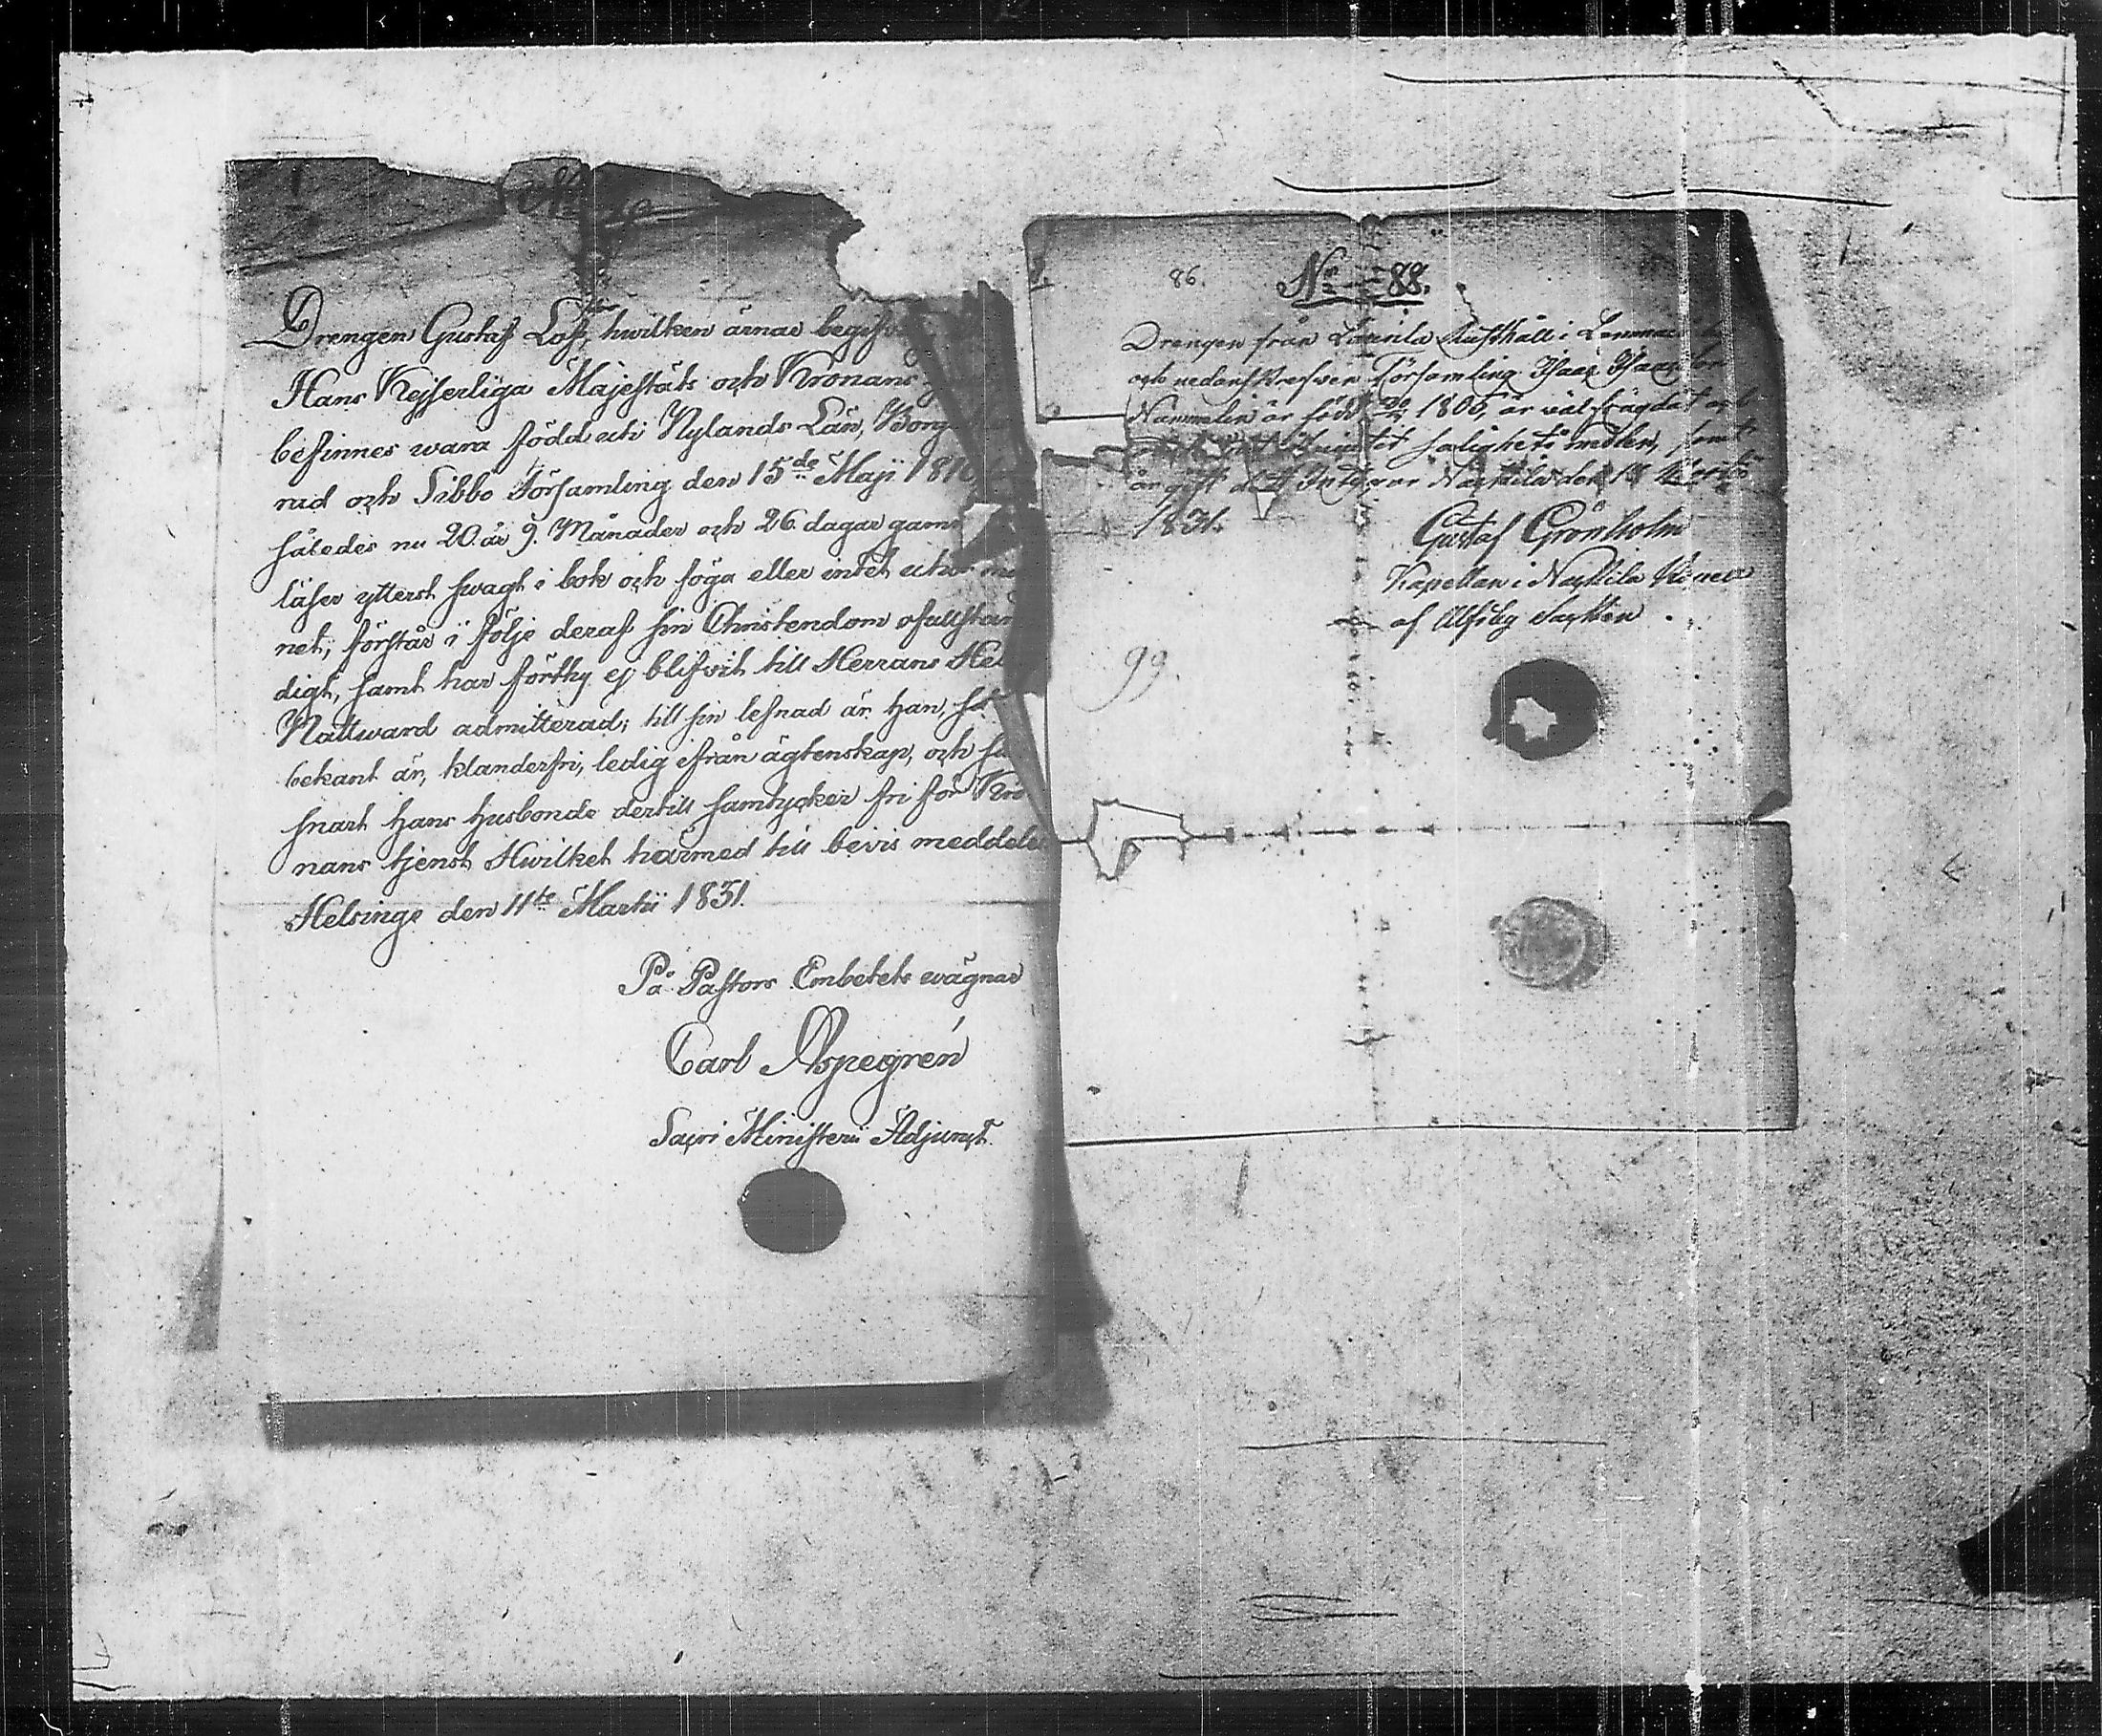 Drengen Gustaf Löf, hwilken ärnar
Hans Kejserliga Majestäts och Kronans
befinnes wara född uti Nylands Län,
rad och Sibbo Församling den 15de Maji 1810
således nu 20 år 9. Månader och 26 dagar
läser ytterst swagt i bok och föga eller intet
net; förstår i följe deraf sin Christendom ofullstän
digt, samt har förthy ej blifvit till Herrans
Nattward admitterad; till sin lefnad är han,
bekant är, klanderfri, ledig ifrån ägtenskap, och
snart hans husbonde dertill samtycker fri för Kro
nans tjenst Hwilket härmed till bevis meddeles
Helsinge den 11te Martii 1831.
På Pastors Embetets wägnar
Carl Aspegrén
Sacri Ministerii Adjunct.
86. No 88.
Drengen från Rusthåll i
och nedanskrefven Församling Isaac
är född 1805, är väl frägdat
salighets medlen, samt
1831.
Gustaf Grönholm
Kapellan i
af
99.